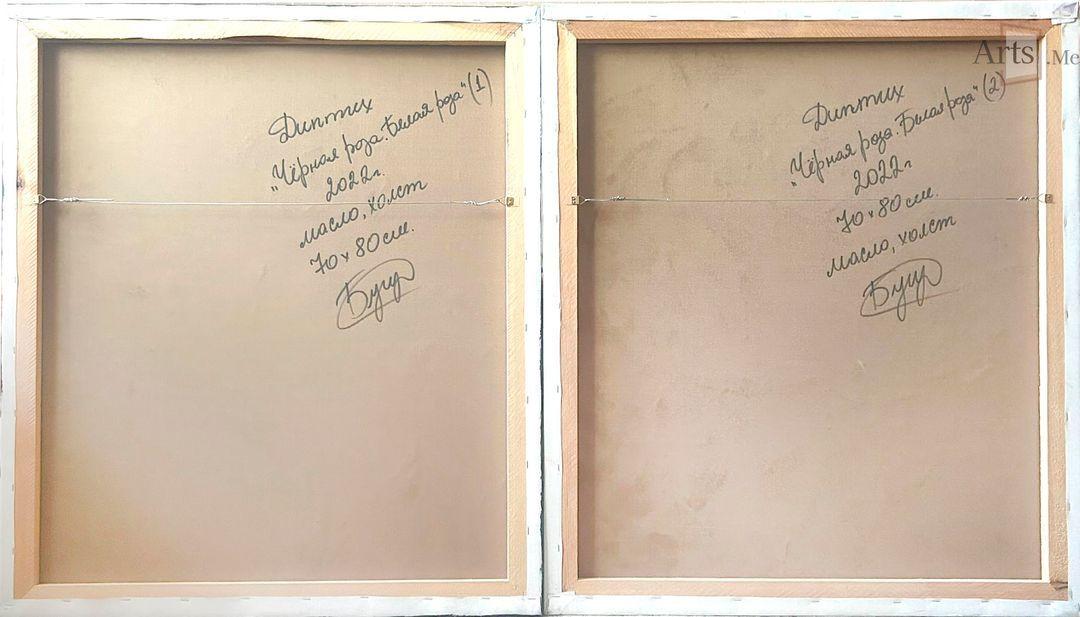 Диптих
"Чёрная роза. Белая роза" (1)
2022г.
масло, холст
70 х 80 см.
Диптих
"Чёрная роза. Белая роза" (2)
2022 г
70 х 80 см.
масло, холст
Arts.Me